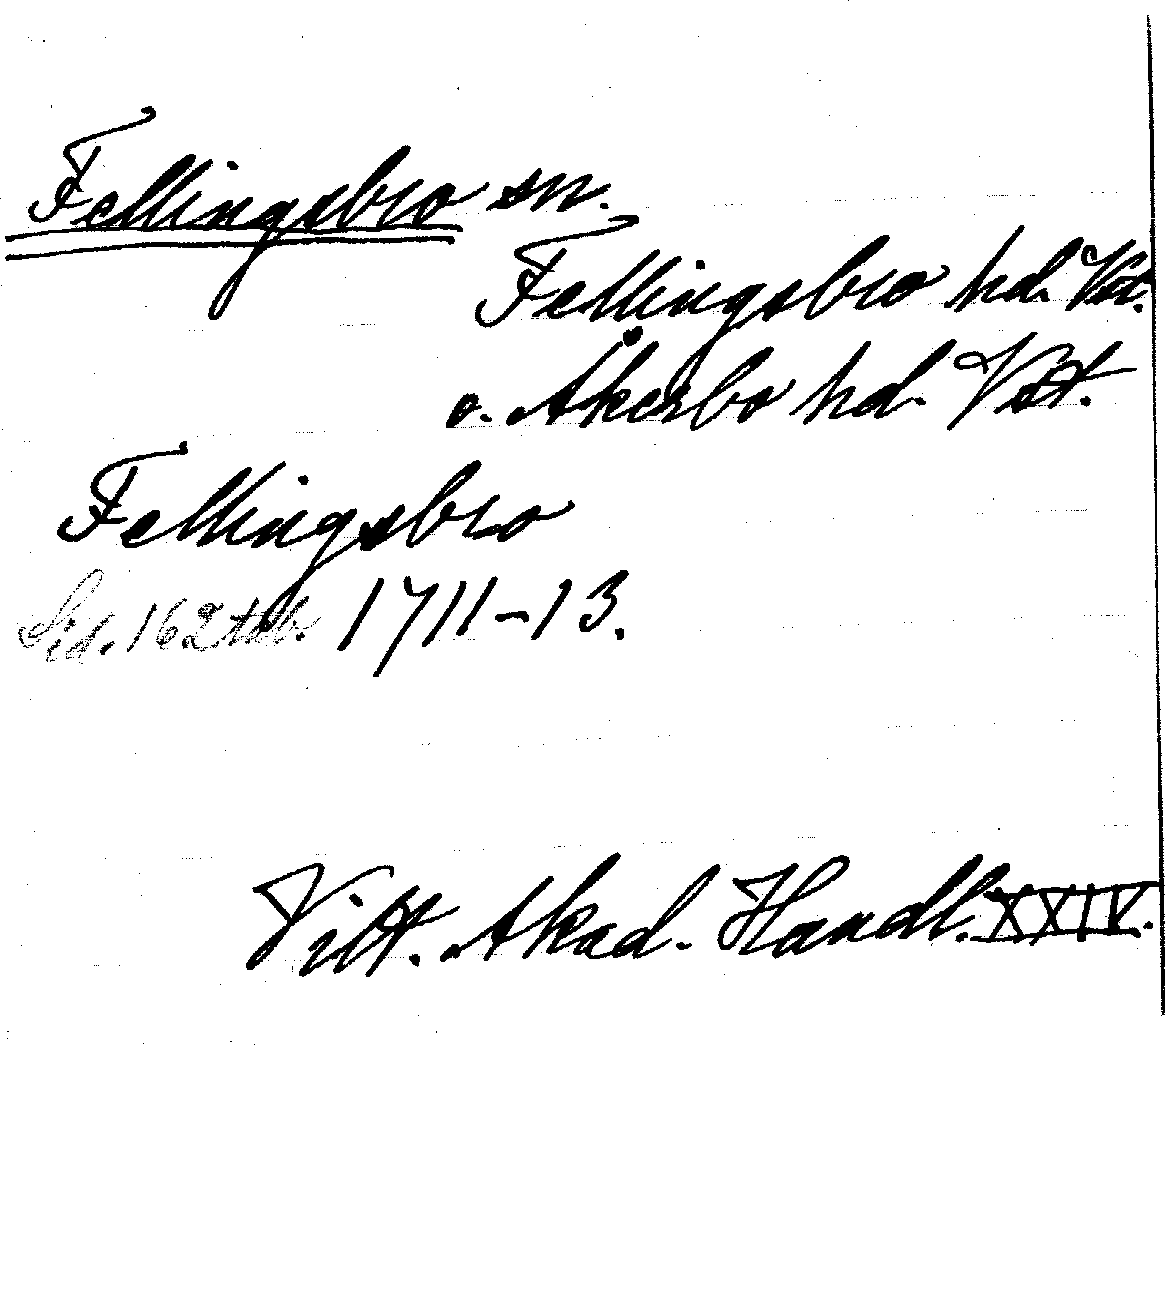 Fellingsbro sn.
Fellingsbro hd. Vst.
o. Åkerbo hd. Vstt.
Fellingsbro
Sid. 162 tab. 1711-13.
Vitt. Akad. Handl. XXIV.